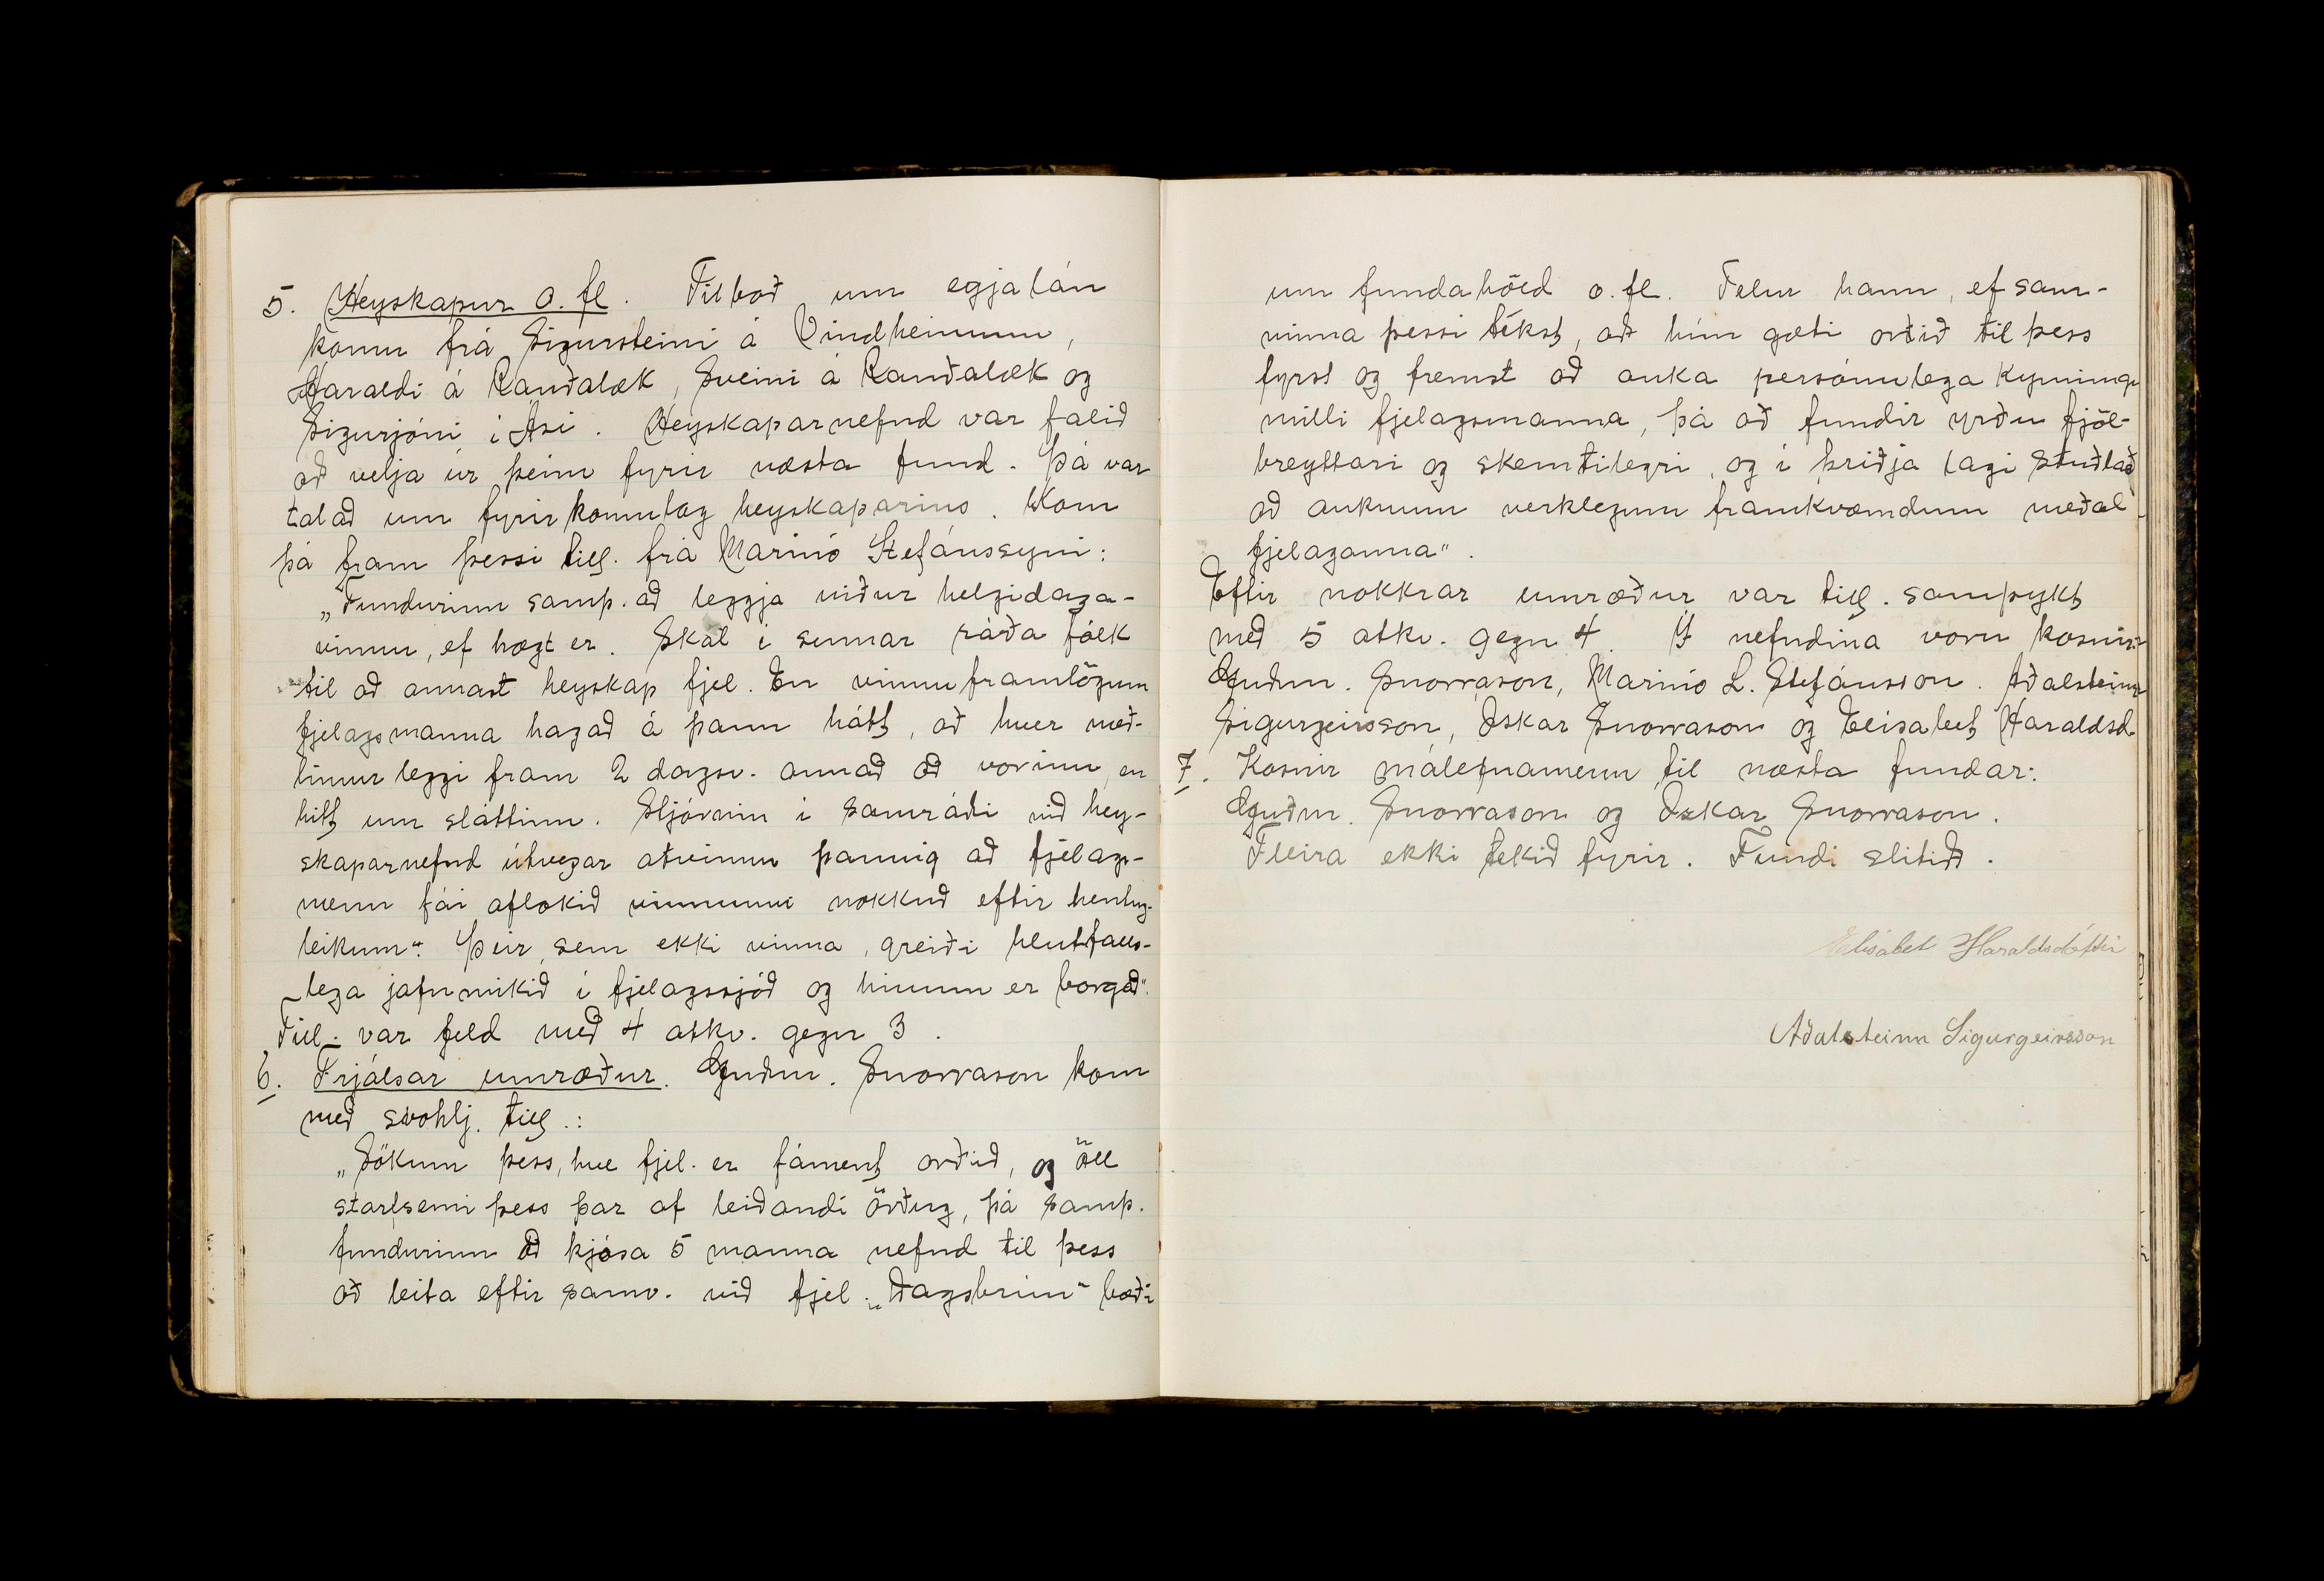 5. Heyskapur o. fl. Tilboð um egjalán
komu frá Sigursteini á Vindheimum,
Haraldi á Rauðalæk, Sveini á Rauðalæk og
Sigurjóni í Ási. Heyskaparnefnd var falið
að velja úr þeim fyrir næsta fund. Þá var
talað um fyrirkomulag heyskaparins. Kom
þá fram þessi till. frá Marinó Stefánssyni:
„Fundurinn samþ. að leggja niður helgidaga-
vinnu, ef hægt er. Skal í sumar ráða fólk
til að annast heyskap fjel. En vinnuframlögum
fjelagsmanna hagað á þann hátt, að hver með-
limur leggi fram 2 dagsv. annað að vorinu, en
hitt um sláttinn. Stjórnin í samráði við hey-
skaparnefnd útvegar atvinnu þannig að fjelags-
menn fái aflokið vinnunni nokkuð eftir hentug-
leikum". Þeir, sem ekki vinna, greiði hlutfalls-
lega jafnmikið í fjelagssjóð og hinum er borgað".
Till. var feld með 4 atkv. gegn 3.
6. Frjálsar umræður. Guðm. Snorrason kom
með svohlj. till.:
„Sökum þess, hve fjel. er fáment orðið, og öll
starfsemi þess þar af leiðandi örðug, þá samþ.
fundurinn að kjósa 5 manna nefnd til þess
að leita eftir samv. við fjel. „Dagsbrún" bæði
um fundahöld o. fl. Telur hann, ef sam-
vinna þessi tækist, að hún gæti orðið til þess
fyrst og fremst að auka persónulega kynningu
milli fjelagsmanna, þá að fundir yrðu fjöl-
breyttari og skemtilegri, og í þriðja lagi stuðlað
að auknum verklegum framkvæmdum meðal
fjelaganna".
Eftir nokkrar umræður var till. samþykt
með 5 atkv. gegn 4. Í nefndina voru kosnir:
Guðm. Snorrason, Marinó L. Stefánsson. Aðalsteinn
Sigurgeirsson, Óskar Snorrason og Elísabet Haraldsd.
7. Kosnir málefnamenn til næsta fundar:
Guðm. Snorrason og Óskar Snorrason.
Fleira ekki tekið fyrir. Fundi slitið.
Elísabet Haraldsdóttir
Aðalsteinn Sigurgeirsson